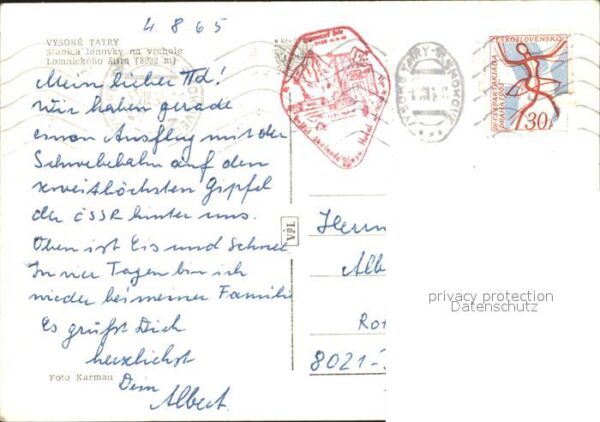 4 8 65
VYSOKÉ TATRY
Stanica lanovky na vrchole
Lomnického štítu (2632 m)
Mein lieber
Wir haben gerade
einen Ausflug mit der
Schwebebahn auf den
zweithöchsten Gipfel
der ČSSR hinter uns.
Oben ist Eis und Schnee
In vier Tagen bin ich
wieder bei meiner Familie
Es grüßt Dich
herzlichst
Dein
Albert
Foto Karman
VYSOKÉ TATRY
ČESKOSLOVENSKO
PRAHA 1965
30
VPL
Herrn
Albe
Ro
8021-
privacy protection
Datenschutz